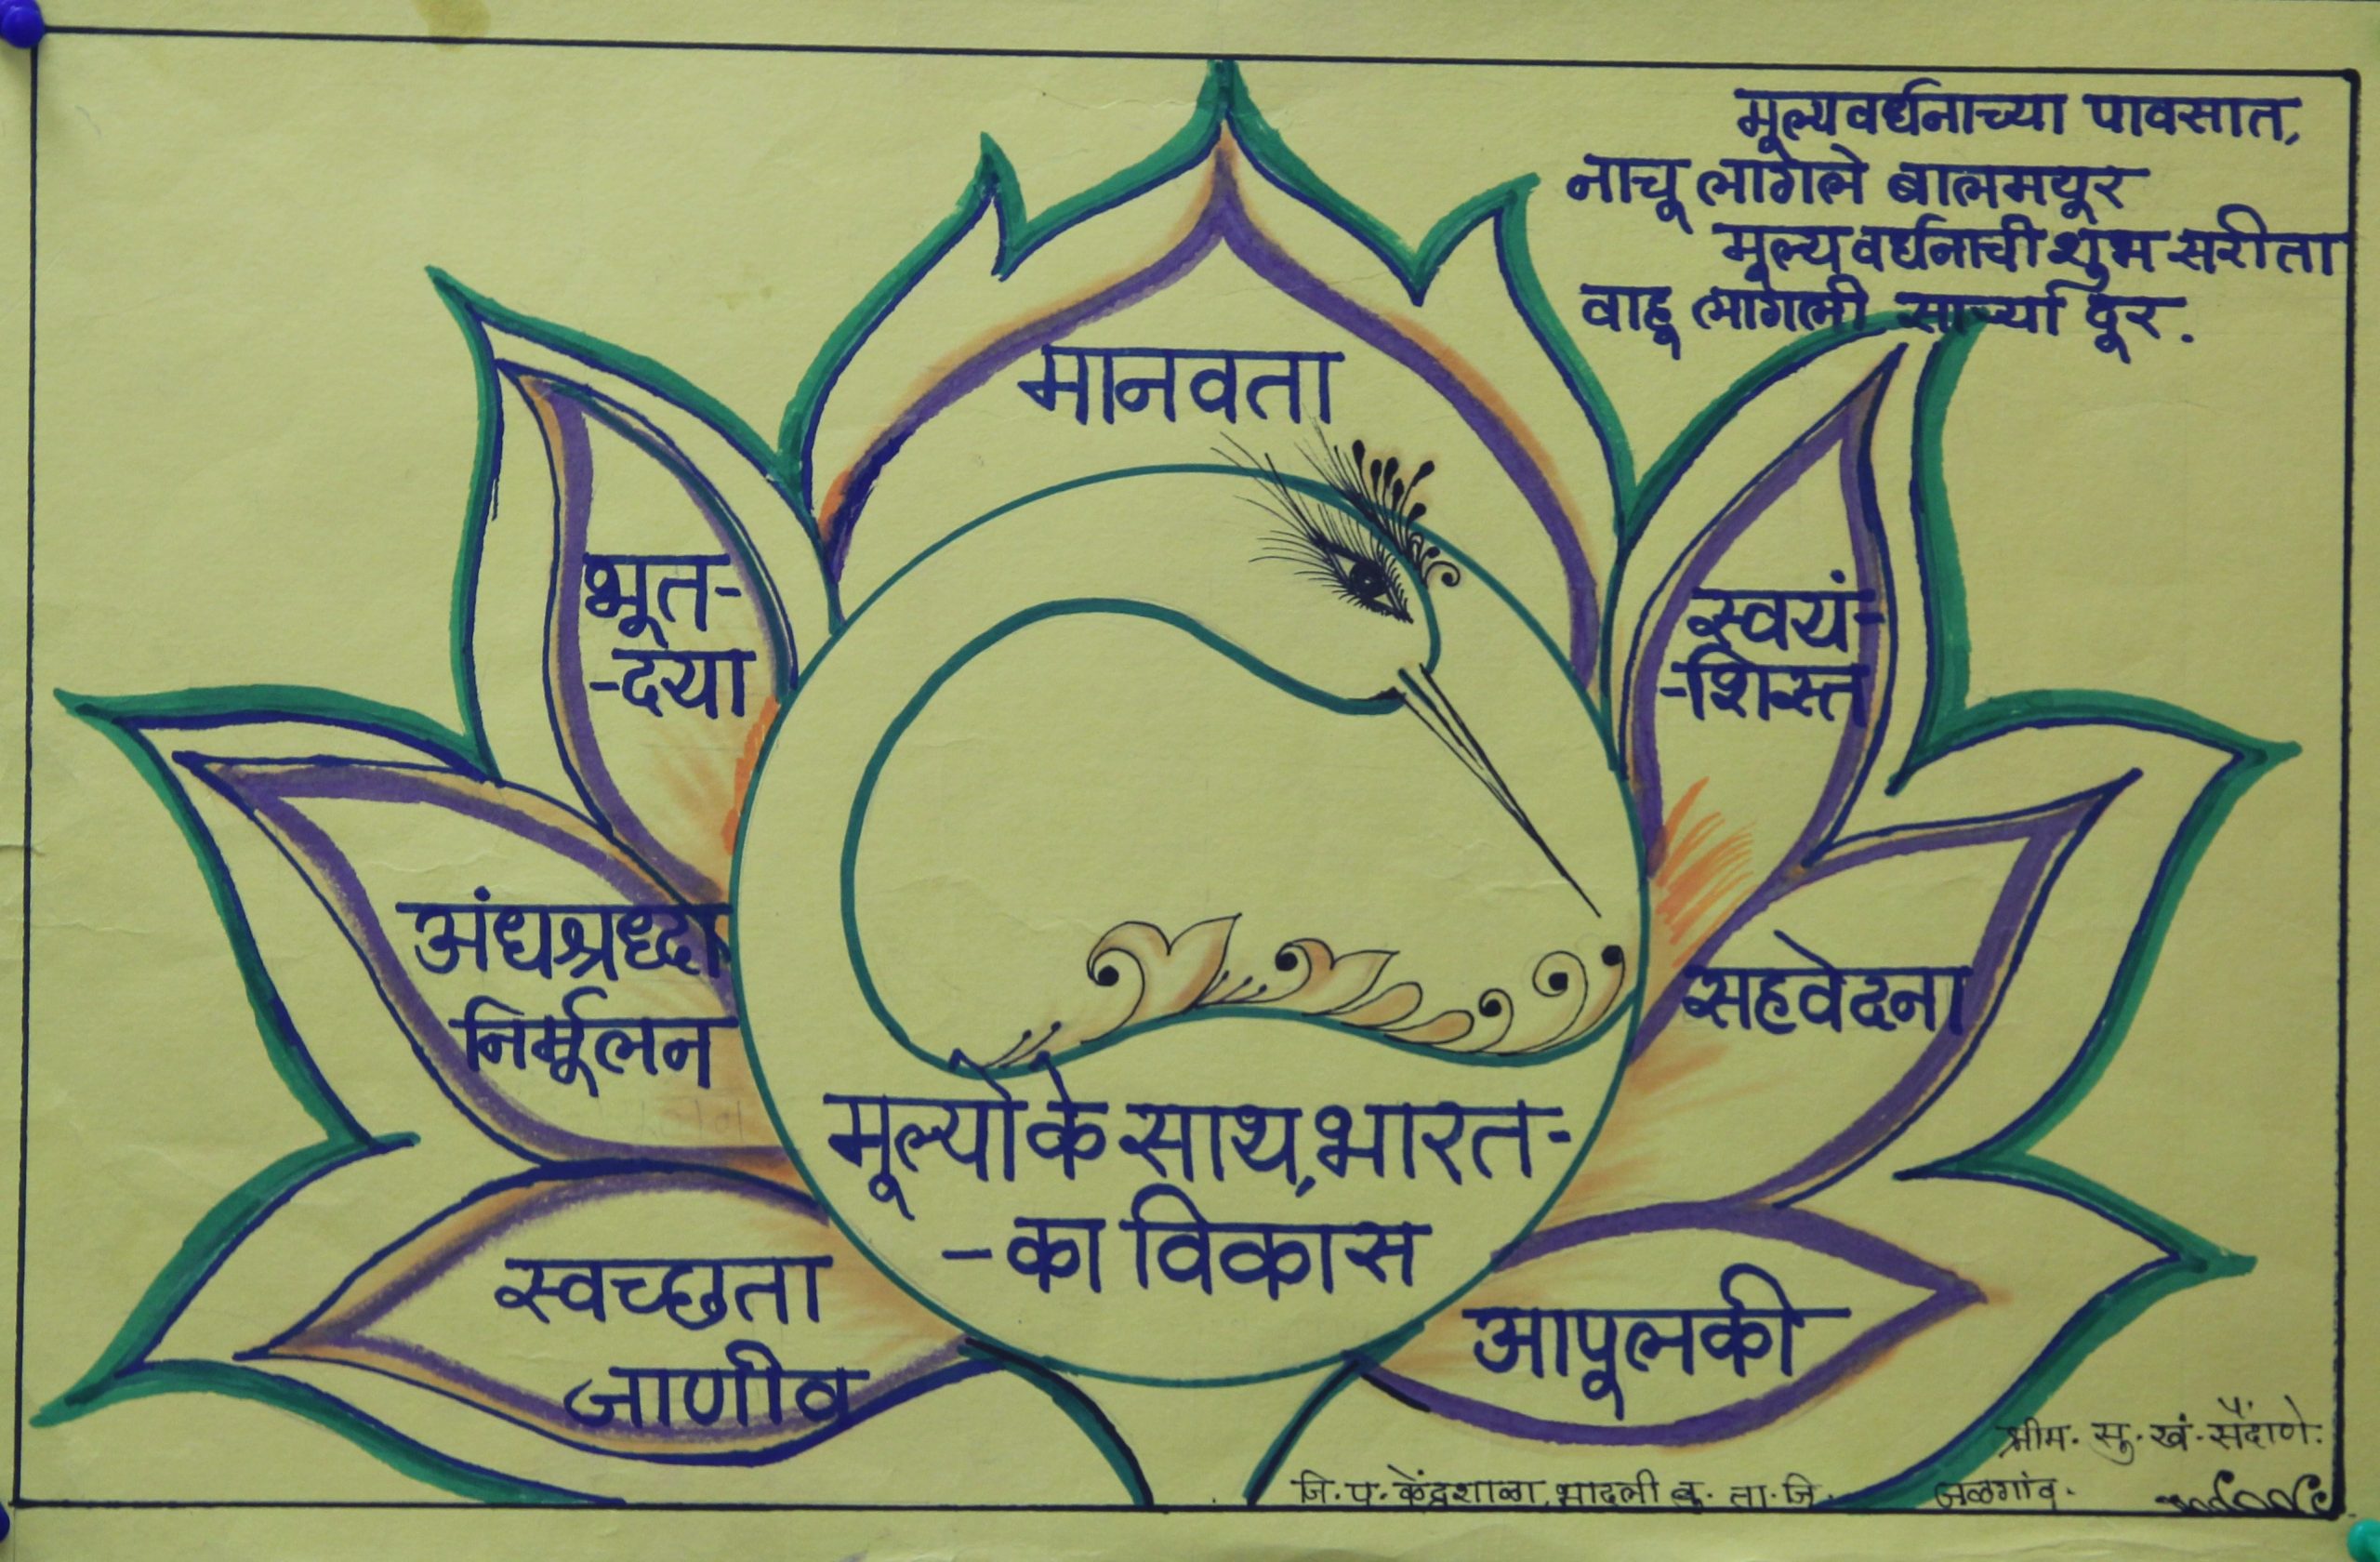 मूल्यवर्धनाच्या पावसात,
नाचू लागले बालमयूर
मूल्यवर्धनाची शुभ सरीता
वाहू लागली साऱ्या दूर.
मानवता
भूत-
-दया
स्वयं-
-शिस्त
अंधश्रध्दा
निर्मूलन
सहवेदना
मूल्यों के साथ, भारत-
-का विकास
स्वच्छता
जाणीव
आपूलकी
श्रीम. सु. खं. सैंदाणे.
जि. प. केंद्रशाळा, भादली बु. ता. जि. जळगांव.